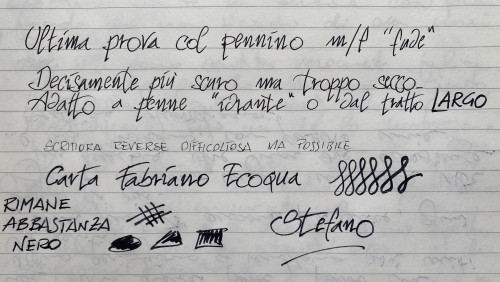 Ultima prova col pennino m/f "fude"
Decisamente più scuro ma troppo secco
Adatto a penne "idrante" o dal tratto LARGO
SCRITTURA REVERSE DIFFICOLTOSA MA POSSIBILE
Carta Fabriano Ecoqua
RIMANE
ABBASTANZA
NERO
Stefano